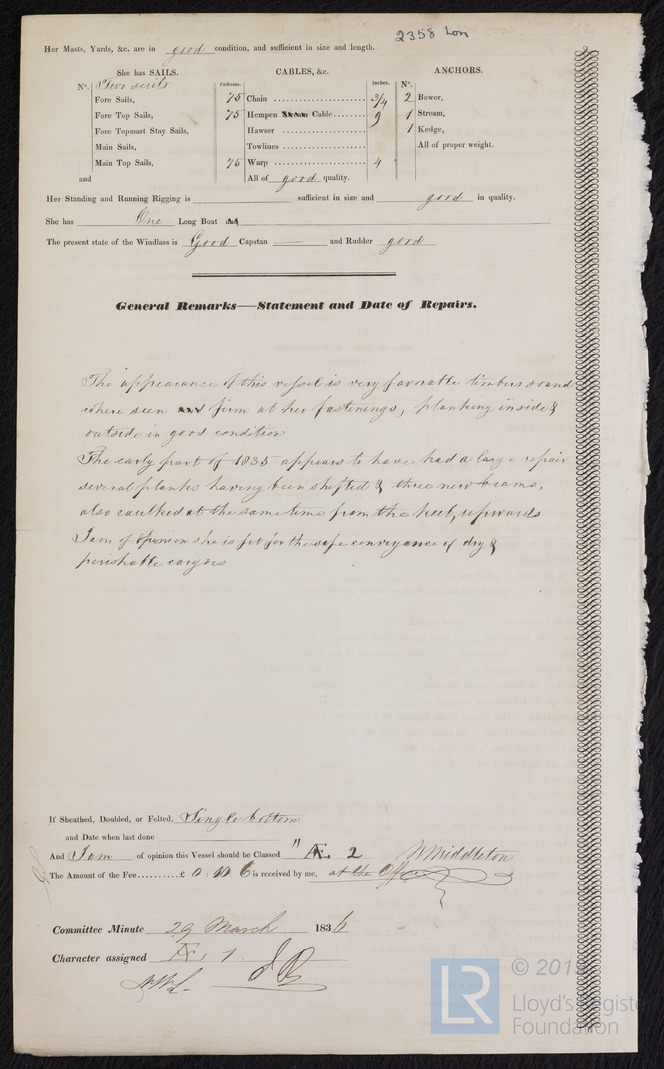 2358 Lon
Her Masts, Yards, &c. are in good condition, and sufficient in size and length.
She has SAILS. CABLES, &c. ANCHORS.
N°. Two suits Fathoms. Inches. N°.
Fore Sails, 75 Chain 3/4 2 Bower,
Fore Top Sails, 75 Hempen Cable 9 1 Stream,
Fore Topmast Stay Sails, Hawser 1 Kedge,
Main Sails, Towlines All of proper weight.
Main Top Sails, 75 Warp 4
and All of good quality.
Her Standing and Running Rigging is sufficient in size and good in quality.
She has One Long Boat and
The present state of the Windlass is Good Capstan — and Rudder good
General Remarks—Statement and Date of Repairs.
The appearance of this vessel is very favorable timbers sound
where seen and firm at her fastenings, planking inside &
outside in good condition
The early part of 1835 appears to have had a large repair
several planks having been shifted & three new beams,
also caulked at the same time from the keel, upwards
I am of opinion she is fit for the safe conveyance of dry &
perishable cargoes
If Sheathed, Doubled, or Felted, Single bottom
and Date when last done
And I am of opinion this Vessel should be Classed " Æ 2 W Middleton
The Amount of the Fee £ 0 : 10 : 6 is received by me, at the Office
Committee Minute 29 March 1836
Character assigned Æ 1
LR
© 2019
Lloyd's Register
Foundation